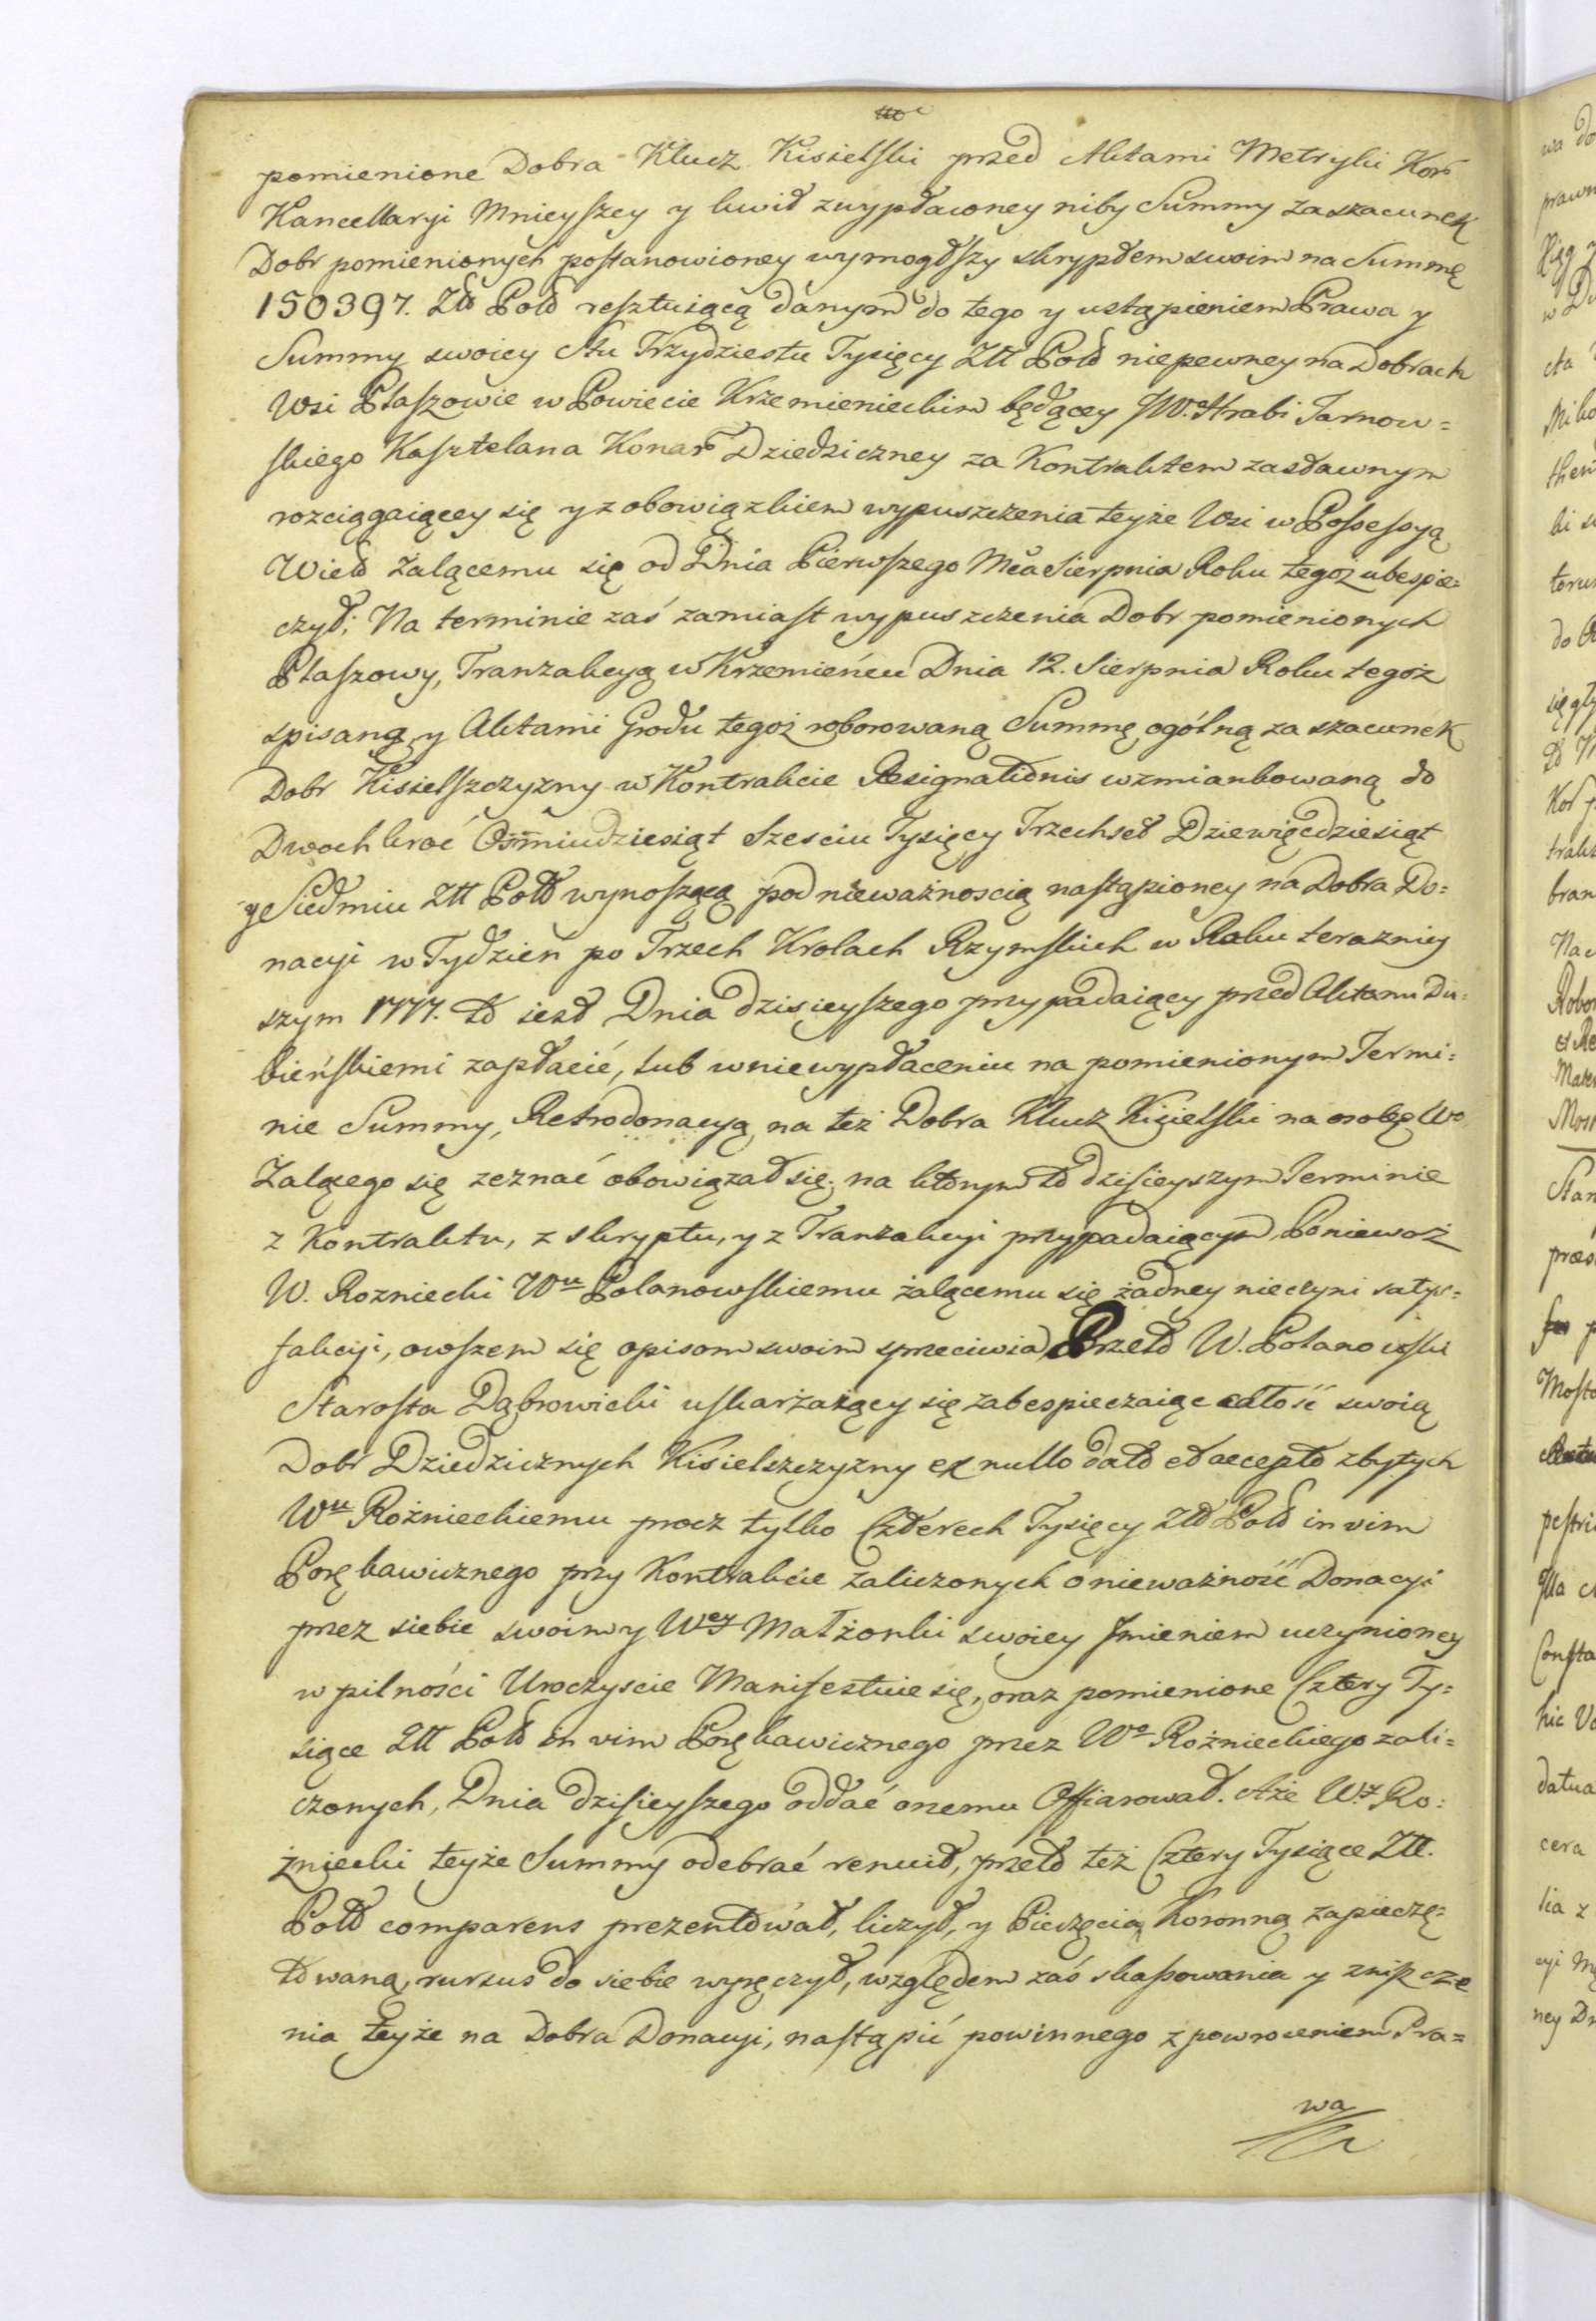 pomienione Dobra Klucz Kisielski przed Aktami Metryki Kor
Kancellaryi Mnieyszey y kwit z wypłaconey niby Summy za szacunek
Dobr pomienionych postanowioney wymogłszy skryptem swoim na Summę
150397. Złt Polt resztuiącą danym do tego y ustąpieniem Prawa y
Summy swoiey Stu Trzydziestu Tysięcy Złt Polt niepewney na Dobrach
Wsi Ptaszowie w Powiecie Krzemienieckim będącey JW. Hrabi Tarnow=
skiego Kasztelana Konar Dziedziczney za Kontraktem zastawnym
rozciągaiącey się y z obowiązkiem wypuszczenia teyże Wsi w Possessyą
Wielt Żalącemu się od Dnia Pierwszego Mca Sierpnia Roku tegoż ubespie=
czył; Na terminie zaś zamiast wypuszczenia Dobr pomienionych
Ptaszowy, Tranzakcyą w Krzemieńcu Dnia 12. Sierpnia Roku tegoż
spisaną y Aktami Grodu tegoż roborowaną Summę ogólną za szacunek
Dobr Kisielszczyzny w Kontrakcie Resignationis wzmiankowaną do
Dwoch kroć Osmiudziesiąt Szesciu Tysięcy Trzechset Dziewięcdziesiąt
y Siedmiu Złt Polt wynoszącą pod nieważnoscią nastąpioney na Dobra Do=
nacyi w Tydzień po Trzech Krolach Rzymskich w Roku teraznieg
szym 1777. to iest Dnia dzisieyszego przypadaiący przed Aktami Du=
bieńskiemi zapłacić, lub w niewypłaceniu na pomienionym Termi=
nie Summy, Retrodonacyą na też Dobra Klucz Kisielski na osobę Wo
Żalącego się zeznać obowiązał się; na którym to dzisieyszym Terminie
z Kontraktu, z skryptu, y z Tranzakcyi przypadaiącym, Ponieważ
W. Rozniecki Wu Polanowskiemu żalącemu się żadney nieczyni satys=
fakcyi, owszem się opisom swoim sprzeciwia, Przeto W. Polanowski
Starosta Dąbrowicki uskarżaiący się zabespieczaiąc całość swoią
Dobr Dziedzicznych Kisielszczyzny ex nullo dato et accepto zbytych
Wu Rożnieckiemu procz tylko Czterech Tysięcy Złt Polt in vim
Porękawicznego przy Kontrakcie zaliczonych o nieważność Donacyi
przez siebie swoim y Wey Małżonki swoiey Jmieniem uczynioney
w pilności Uroczyscie Manifestuie się, oraz pomienione Cztery Ty=
siące Złt Polt in vim Porękawicznego przez Wo Rożnieckiego zali=
czonych, Dnia dzisieyszego oddać onemu Offiarował. Aże W.y Ro=
żniecki teyże Summy odebrać renuit, przeto też Cztery Tysiące Złt.
Polt comparens prezentował, liczył, y Pieczęcią Koronną zapieczę=
towaną, rursus do siebie wyręczył, względem zaś skassowania y zniszcze
nia teyże na Dobra Donacyi, nastąpić powinnego z powroceniem Pra=
wa